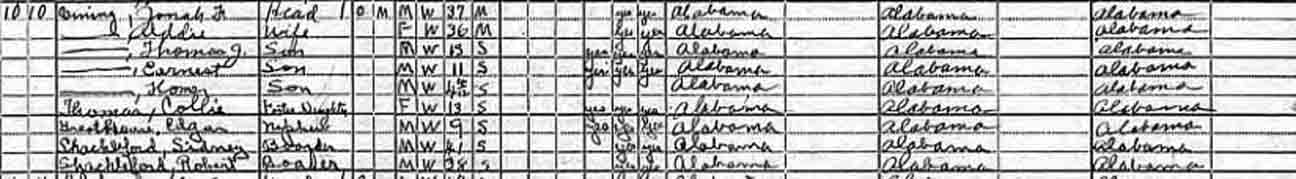 10 10 Dining, Jonah F Head 1 O M M W 37 M yes yes Alabama Alabama Alabama
——, Addie Wife F W 36 M yes yes Alabama Alabama Alabama
——, Thomas J. Son M W 13 S yes yes yes Alabama Alabama Alabama
——, Earnest Son M W 11 S yes yes yes Alabama Alabama Alabama
——, Homer Son M W S Alabama Alabama Alabama
Thomas, Collie Foster Daughter F W 13 S yes yes yes Alabama Alabama Alabama
Greathouse, Edgar Nephew M W 9 S yes yes yes Alabama Alabama Alabama
Shackleford, Sidney Boarder M W 41 S yes yes Alabama Alabama Alabama
Shackleford, Robert Boarder M W 38 S yes yes Alabama Alabama Alabama